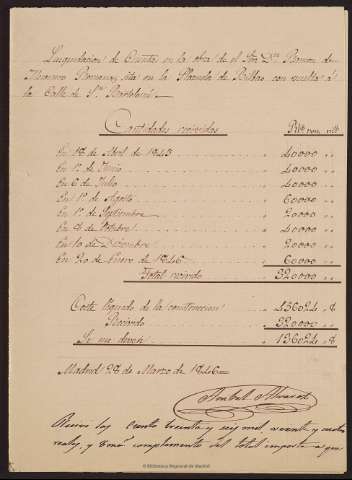 Liquidacion de Cuenta en la obra de el Sor Dn Ramon de
Mesonero Romanos, sita en la Plazuela de Bilbao con vuelta á
la Calle de Sn Bartolomé
Cantidades recividas Rs von mrs
En 18 de Abril de 1845 40000
En 1º de Junio 40000
En 6 de Julio 40000
En 1º de Agosto 60000
En 1º de Septiembre 20000
En 8 de Octubre 40000
En 10 de Diciembre 20000
En 20 de Enero de 1846 60000
Total recivido 320000
Coste líquido de la construccion 456024 8
Recivido 320000
Se me deve 136024 8
Madrid 28 de Marzo de 1846
Anibal Alvarez
Recivi los ciento treinta y seis mil veinte y cuatro
reales, y 8 mrs complemento del total importe a que
© Biblioteca Regional de Madrid